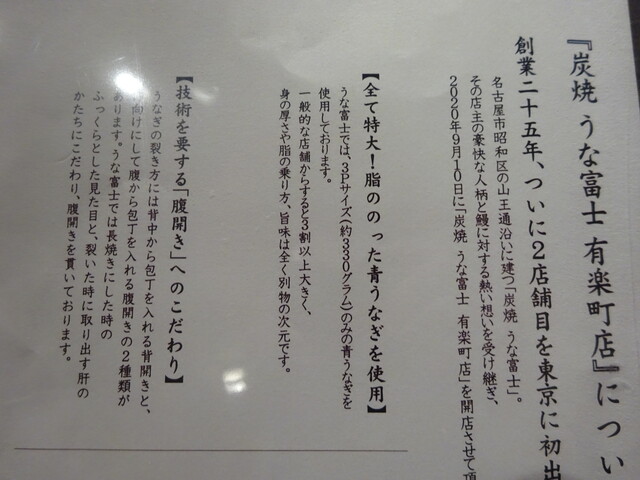 『炭焼 うな富士 有楽町店』につい
創業二十五年、ついに2店舗目を東京に初出
名古屋市昭和区の山王通沿いに建つ「炭焼 うな富士」。
その店主の豪快な人柄と鰻に対する熱い想いを受け継ぎ、
2020年9月10日に「炭焼 うな富士 有楽町店」を開店させて頂
【全て特大！脂ののった青うなぎを使用】
うな富士では、3Pサイズ(約330グラム)のみの青うなぎを
使用しております。
一般的な店舗からすると3割以上大きく、
身の厚さや脂の乗り方、旨味は全く別物の次元です。
【技術を要する「腹開き」へのこだわり】
うなぎの裂き方には背中から包丁を入れる背開きと、
向けにして腹から包丁を入れる腹開きの2種類が
あります。うな富士では長焼きにした時の
ふっくらとした見た目と、裂いた時に取り出す肝の
かたちにこだわり、腹開きを貫いております。